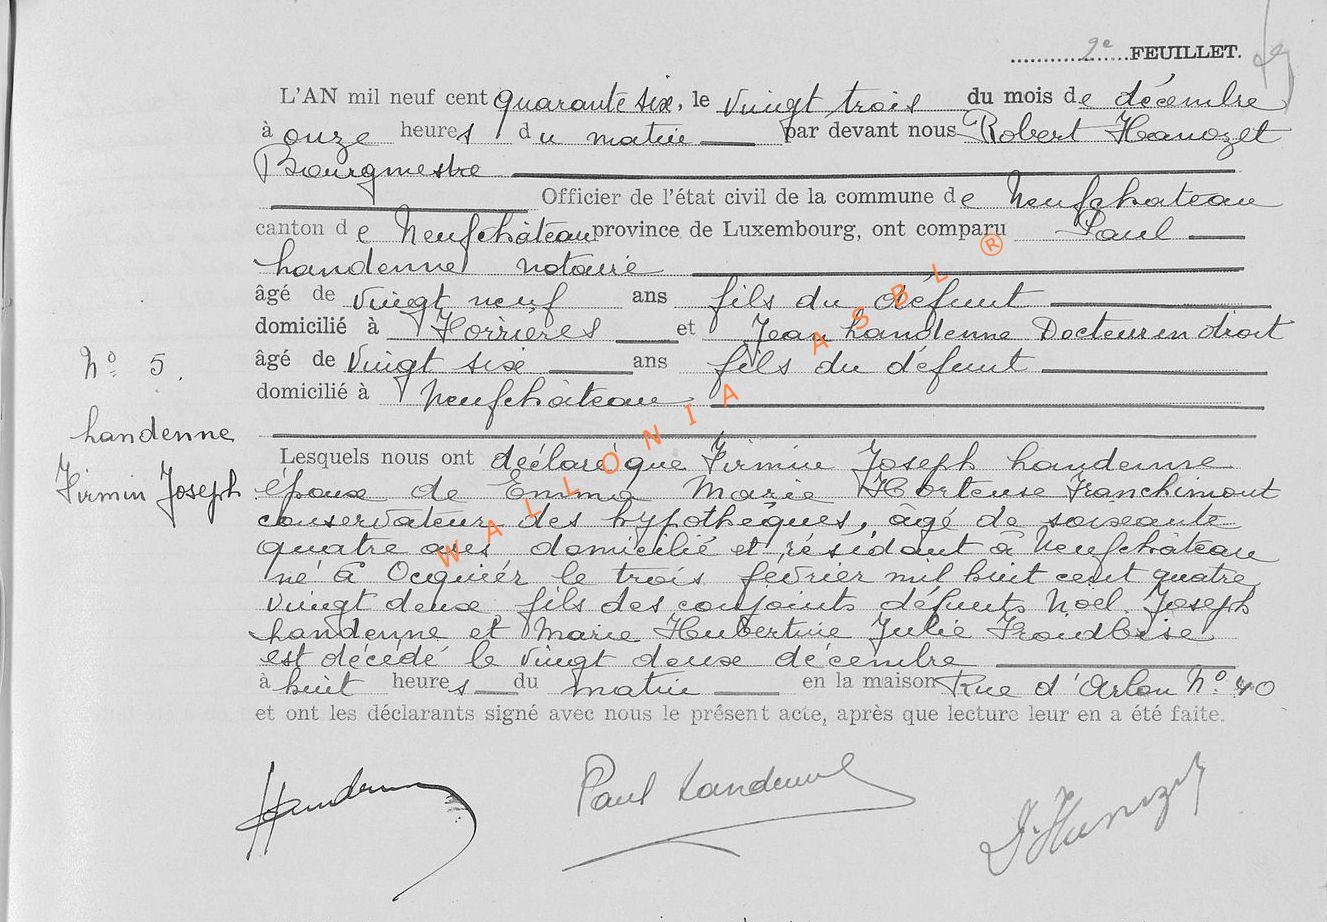 2e FEUILLET.
L'AN mil neuf cent quarante six, le vingt trois du mois de décembre
à onze heures du matin par devant nous Robert Hanozet
Bourgmestre
Officier de l'état civil de la commune de Neufchateau
canton de Neufchâteau province de Luxembourg, ont comparu Paul
Landenne notaire
âgé de vingt neuf ans fils du défunt
domicilié à Horrieres et Jean Landenne Docteur en droit
âgé de vingt six ans fils du défunt
domicilié à Neufchâteau
Nº 5.
Landenne
Firmin Joseph
Lesquels nous ont déclaré que Firmin Joseph Landenne
époux de Emma Marie Hortense Franchimont
conservateur des hypothèques, âgé de soixante
quatre ans domicilié et résidant à Neufchâteau
né à Ocquiér le trois février mil huit cent quatre
vingt deux fils des conjoints défunts Noël Joseph
Landenne et Marie Hubertine Julie Froidbise
est décédé le vingt deux décembre
à huit heures du matin en la maison Rue d'Arlon Nº 40
et ont les déclarants signé avec nous le présent acte, après que lecture leur en a été faite.
WALLONIA ASBL ®
Landenne Paul Landenne Hanozet